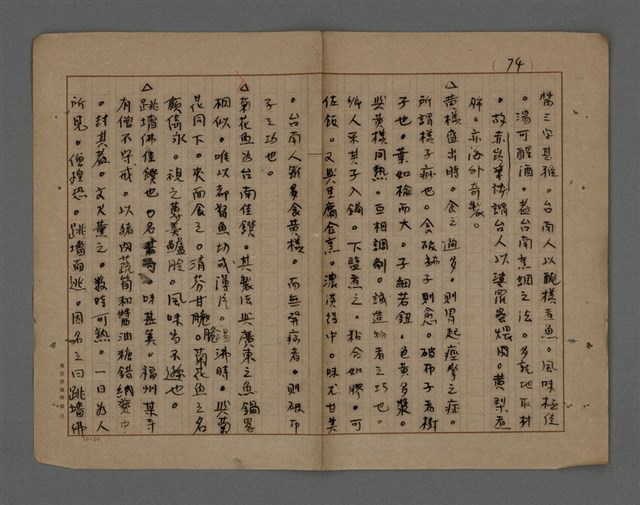 (74)
醬三字甚雅。台南人以醃檨煮魚。風味極佳
。湯可醒酒。蓋台南烹調之法。多就地取材
。故赤崁筆談謂台人以波羅蜜煨肉。黃梨煮
肺。亦海外奇製。
△黃檨盛出時。食之過多。則胃起痙攣之症。
所謂檨子痧也。食破布子則愈。破布子者樹
子也。葉如檜而大。子細若鈕。色黃多漿。
與黃檨同熟。互相調劑。誠造物者之巧也。
鄉人采其子入鍋。下鹽煮之。黏合如膠。可
佐飯。又與豆腐合烹。濃淡得中。味尤甘美
。台南人雖多食黃檨。而無發病者。則破布
子之功也。
△菊花魚為台南佳饌。其製法與廣東之魚鍋畧
相似。唯以都督魚切成薄片。湯沸時。與菊
花同下。夾而食之。清芬甘脆。菊花魚之名
頗倚永。視之蓴羹鱸膾。風味當不遜也。
△跳墻佛佳饌也。名。味甚美。福州某寺
有僧不守戒。以豬肉蔬筍和醬油糖錯納甕中
。封其蓋。文火薰之。數時可熟。一日為人
所見。僧惶恐。跳墻而逃。因名之曰跳墻佛